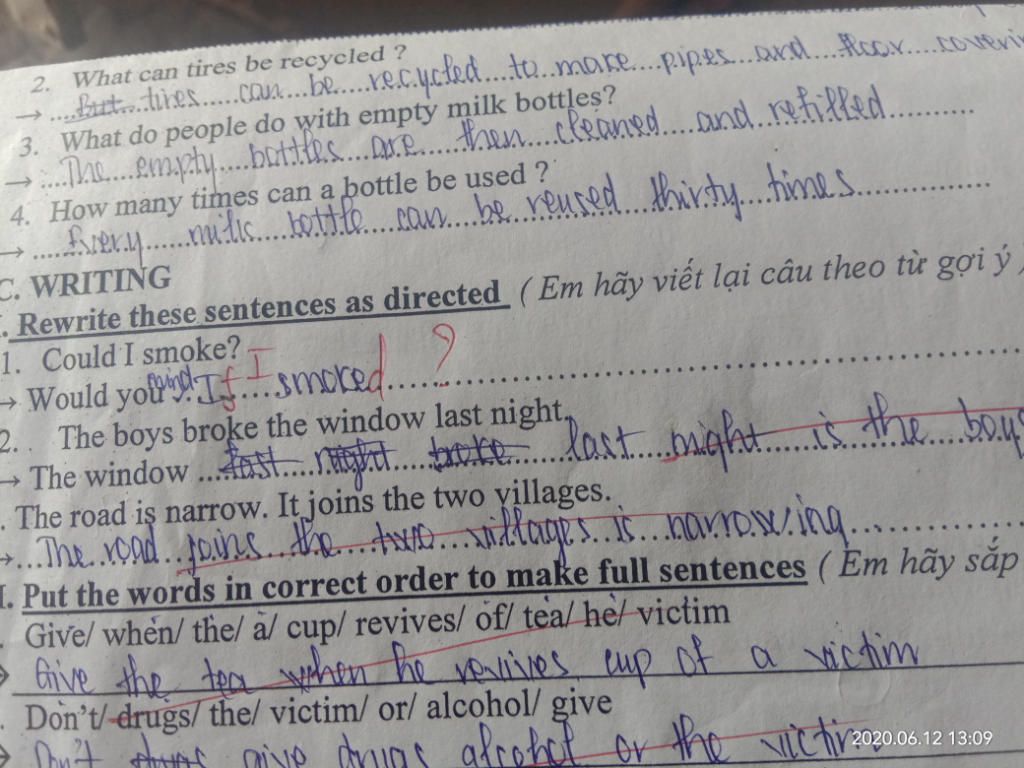 2. What can tires be recycled ?
→ But tires can be recycled to make pipes and floor
3. What do people do with empty milk bottles?
→ The empty bottles are then cleaned and refilled
4. How many times can a bottle be used ?
→ Every milk bottle can be reused thirty times
C. WRITING
. Rewrite these sentences as directed ( Em hãy viết lại câu theo từ gợi ý
1. Could I smoke?
→ Would you mind If I smoked ?
2. The boys broke the window last night.
→ The window last night broke last night is the boys
. The road is narrow. It joins the two villages.
→ The road joins the two villages is narrowing
I. Put the words in correct order to make full sentences ( Em hãy sắp
Give/ when/ the/ a/ cup/ revives/ of/ tea/ he/ victim
Give the tea when he revives cup of a victim
. Don't/ drugs/ the/ victim/ or/ alcohol/ give
Don't drugs give drugs alcohol or the victim
2020.06.12 13:09